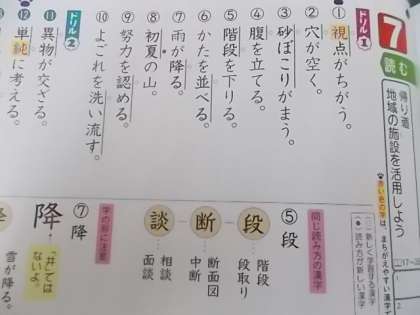 7
読む
帰り道
地域の施設を活用しよう
ドリル①
① 視点がちがう。
② 穴が空く。
③ 砂ぼこりがまう。
④ 腹を立てる。
⑤ 階段を下りる。
⑥ かたを並べる。
⑦ 雨が降る。
⑧ 初夏の山。
⑨ 努力を認める。
⑩ よごれを洗い流す。
ドリル②
⑪ 異物が交ざる。
⑫ 単純に考える。
同じ読み方の漢字
⑤ 段
段
階段
段取り
断
断面図
中断
談
相談
面談
字の形に注意
⑦ 降
降
「井」ではないよ。
雪が降る。